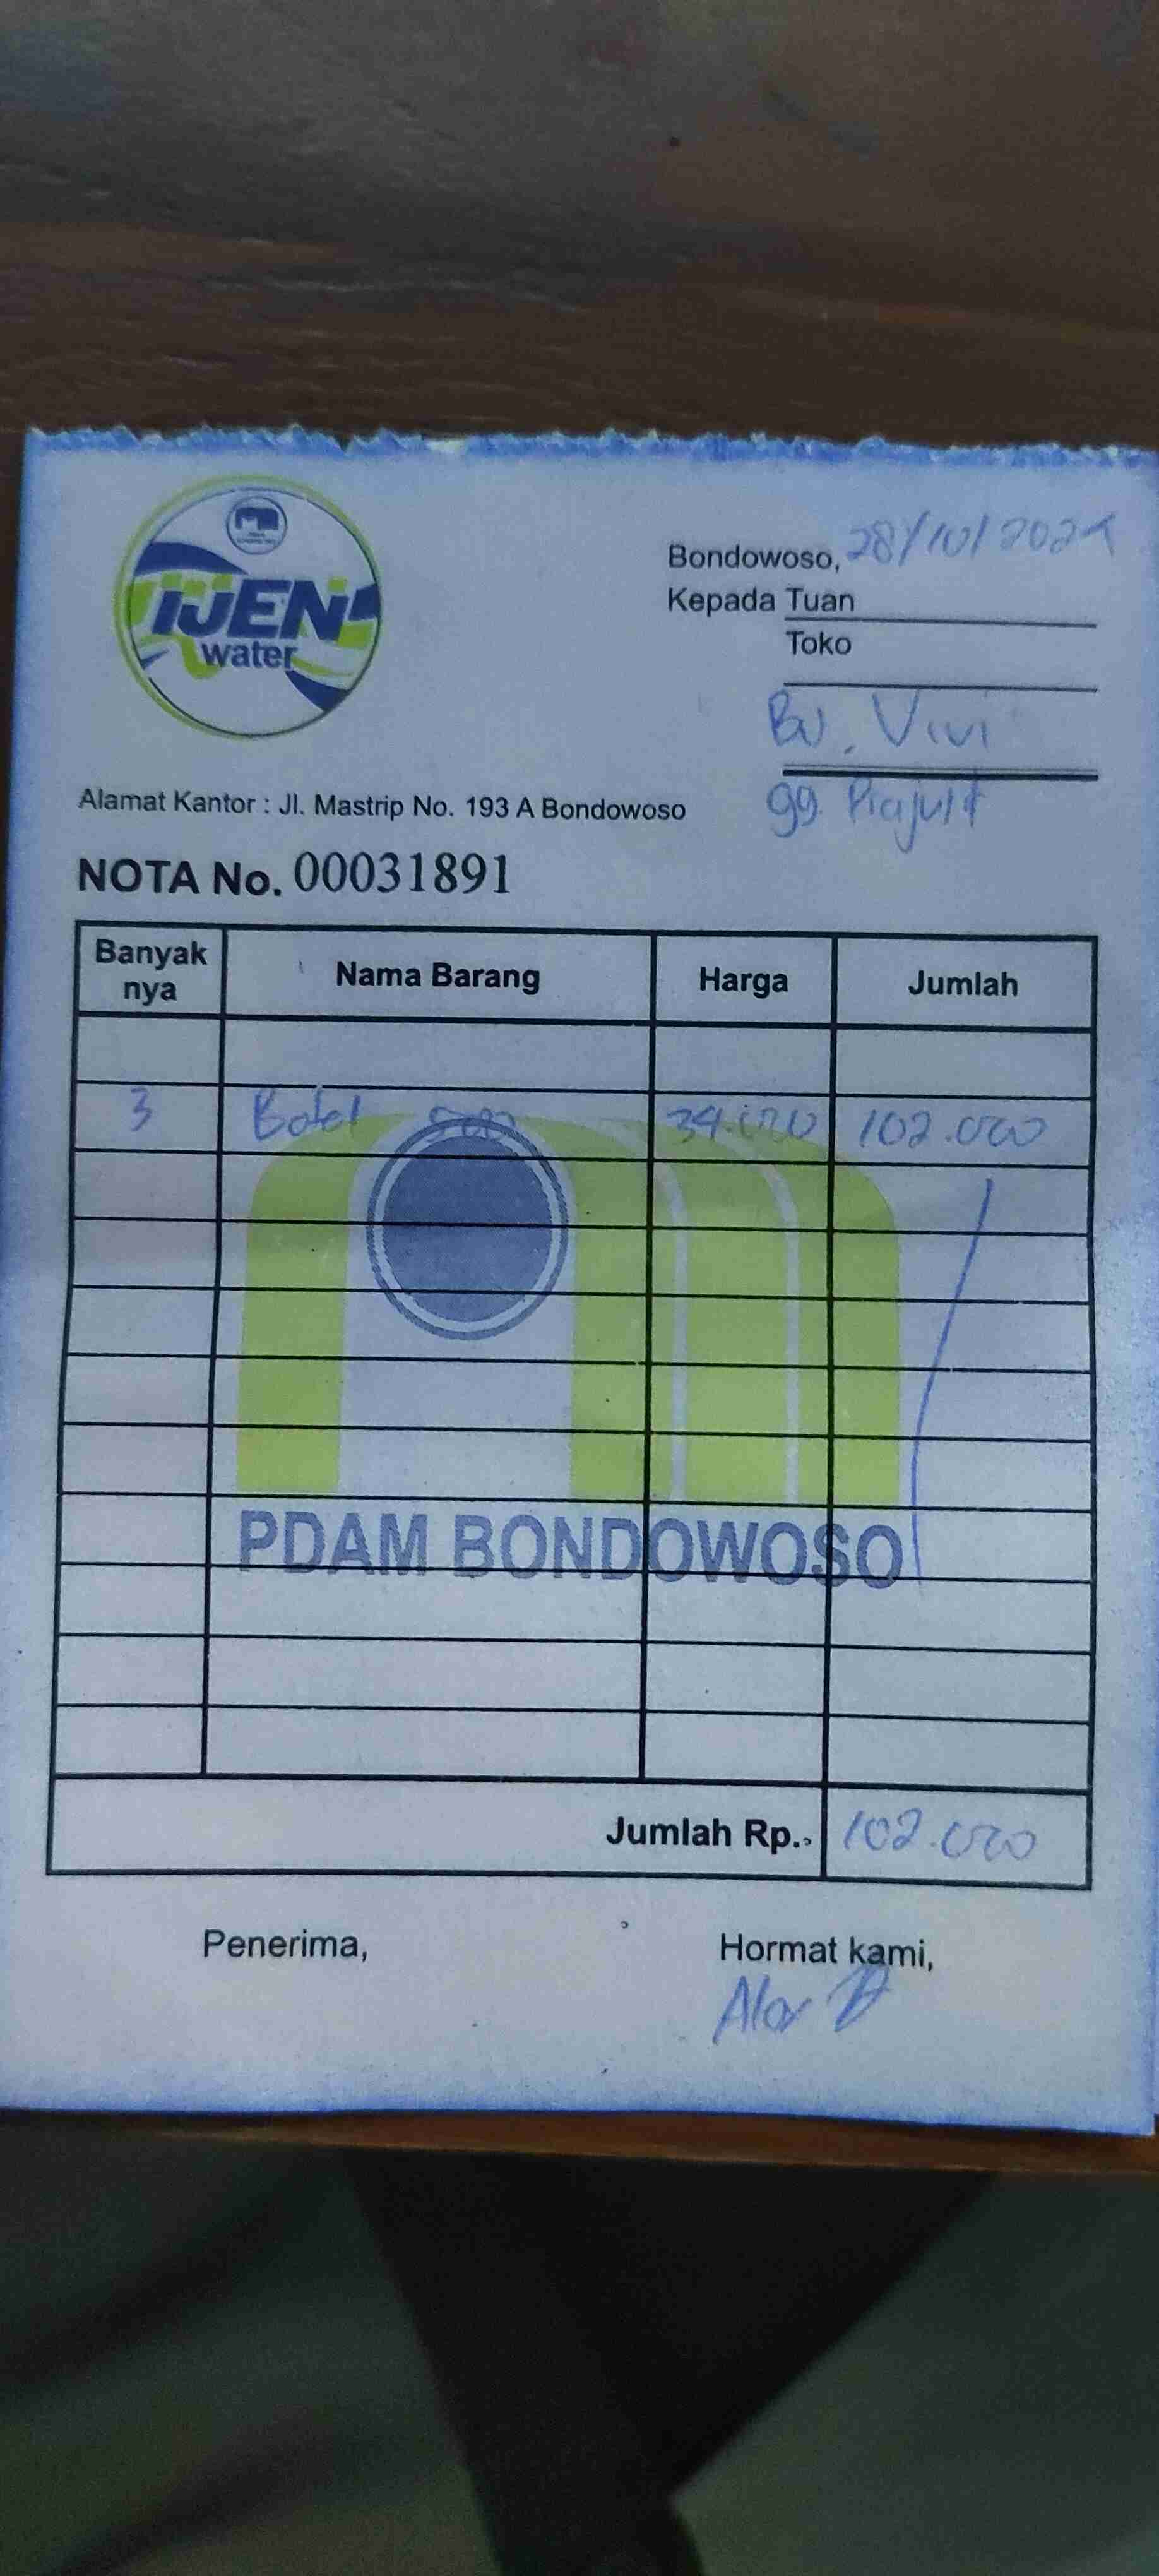 IJEN
water
Bondowoso, 28/10/2024
Kepada Tuan
Toko
Bu. Vivi
gg. Prajurit
Alamat Kantor : Jl. Mastrip No. 193 A Bondowoso
NOTA No. 00031891
Banyak nya Nama Barang Harga Jumlah
3 Botol 500 34.000 102.000
PDAM BONDOWOSO
Jumlah Rp. 102.000
Penerima, Hormat kami,